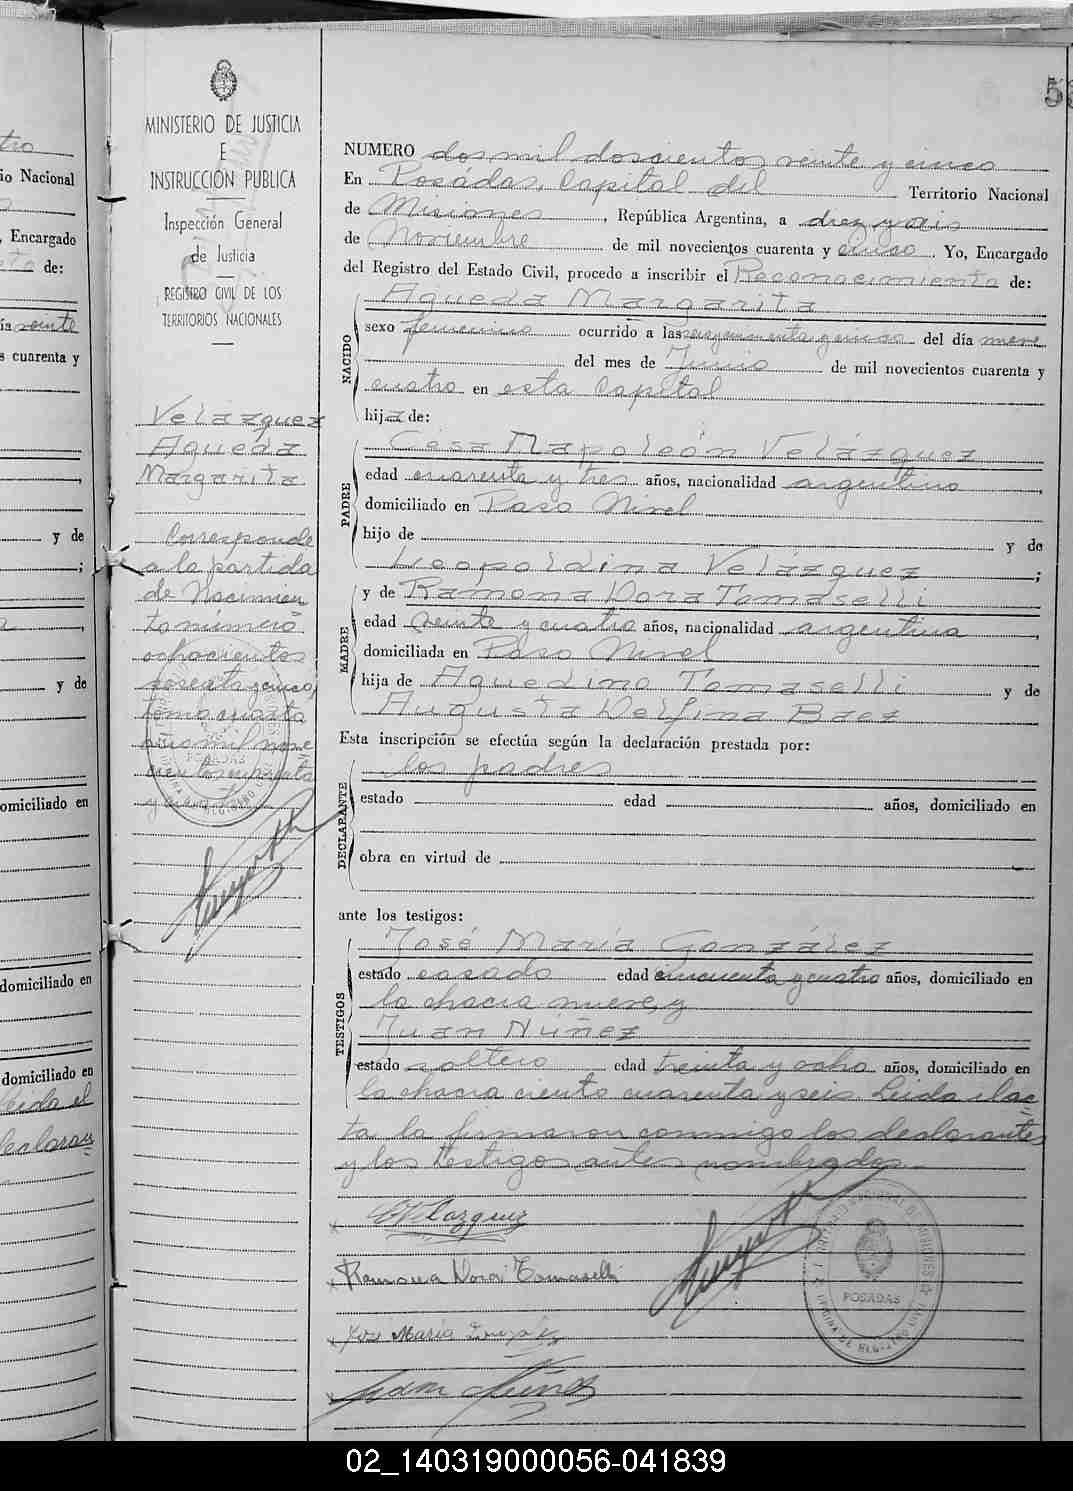 MINISTERIO DE JUSTICIA
E
INSTRUCCIÓN PUBLICA
Inspección General
de Justicia
REGISTRO CIVIL DE LOS
TERRITORIOS NACIONALES
Velázquez
Agueda
Margarita
Corresponde
a la partida
de Nacimien
to número
ochocientos
tomo cuarto
año mil nove
NUMERO dos mil doscientos veinte y cinco
En Posadas, Capital del Territorio Nacional
de Misiones, República Argentina, a diez y seis
de Noviembre de mil novecientos cuarenta y cinco. Yo, Encargado
del Registro del Estado Civil, procedo a inscribir el Reconocimiento de:
Agueda Margarita
NACIDO
sexo femenino ocurrido a las del día nueve
del mes de Junio de mil novecientos cuarenta y
cuatro en esta Capital
hija de:
PADRE
Cesa Napoleón Velázquez
edad cuarenta y tres años, nacionalidad argentino,
domiciliado en Paso Nivel
hijo de y de
Leopoldina Velázquez;
MADRE
y de Ramona Dora Tomaselli
edad veinte y cuatro años, nacionalidad argentina,
domiciliada en Paso Nivel
hija de Aguedino Tomaselli y de
Augusta Delfina Baez
Esta inscripción se efectúa según la declaración prestada por:
DECLARANTE
los padres
estado edad años, domiciliado en
obra en virtud de
ante los testigos:
TESTIGOS
José María González
estado casado edad cincuenta y cuatro años, domiciliado en
la chacra nueve, y
Juan Núñez
estado soltero edad treinta y ocho años, domiciliado en
la chacra ciento cuarenta y seis. Leida el ac
ta la firmaron conmigo los declarantes
y los testigos antes nombrados.
Velazquez
Ramona Dora Tomaselli
José María González
Juan Núñez
POSADAS
02_140319000056-041839